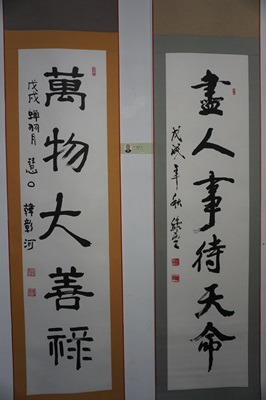 盡人事待天命
戊戌年秋
萬物大善祿
戊戌 月 韓彰河